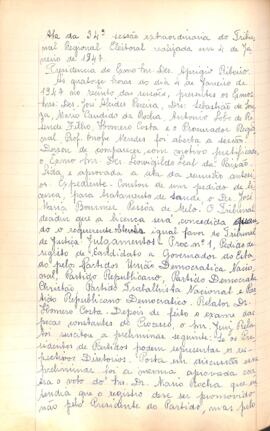 Ata da 34ª sessão extraordinaria do Tribu-
nal Regional Eleitoral realizada em 4 de Ja-
neiro de 1947
Presidencia do Exmo Snr. Des. Aprigio Ribeiro.
As quatorze horas do dia 4 de Janeiro de
1947 no recinto das sessões, presentes os Exmos
Snrs. Des. José Alcides Pereira, Drs. Sebastião de Sou-
za, Mario Candido da Rocha, Antonio Lobo de Re-
zende Filho, Homero Costa e o Procurador Regio-
nal Prof. Onofre Mendes foi aberta a sessão.
Deixou de comparecer com motivo justificado
o Exmo Snr. Des. Leovigildo Leal da Paixão.
Lida, é aprovada a ata da reunião anteri-
or. Expediente. Constou de um pedido de li-
cença, para tratamento de saude, do Dr. José
Maria Pessoa de Melo. O Tribunal
decidiu que a licença será concedida quan-
do o requerente igual favor do Tribunal
de Justiça. Julgamentos: Proc. nº 1, Pedido de
registro de Candidato a Governador do Esta-
do pelos Partidos União Democratica Nacio-
nal, Partido Republicano, Partido Democrata
Christão, Partido Trabalhista Nacional e Par-
tido Republicano Democratico. Relator Dr.
Homero Costa. Depois de feito o exame das
peças constantes do Processo, o Snr. Juiz Rela-
tor suscitou a preliminar seguinte: Se os Pre-
sidentes de Partidos podem representar os res-
pectivos Diretorios. Posta em discussão essa
preliminar foi a mesma aprovada con-
tra o voto do Snr. Dr. Mario Rocha que en-
tendia que o registro deve ser promovido
não pelo Presidente do Partido, mas pelo